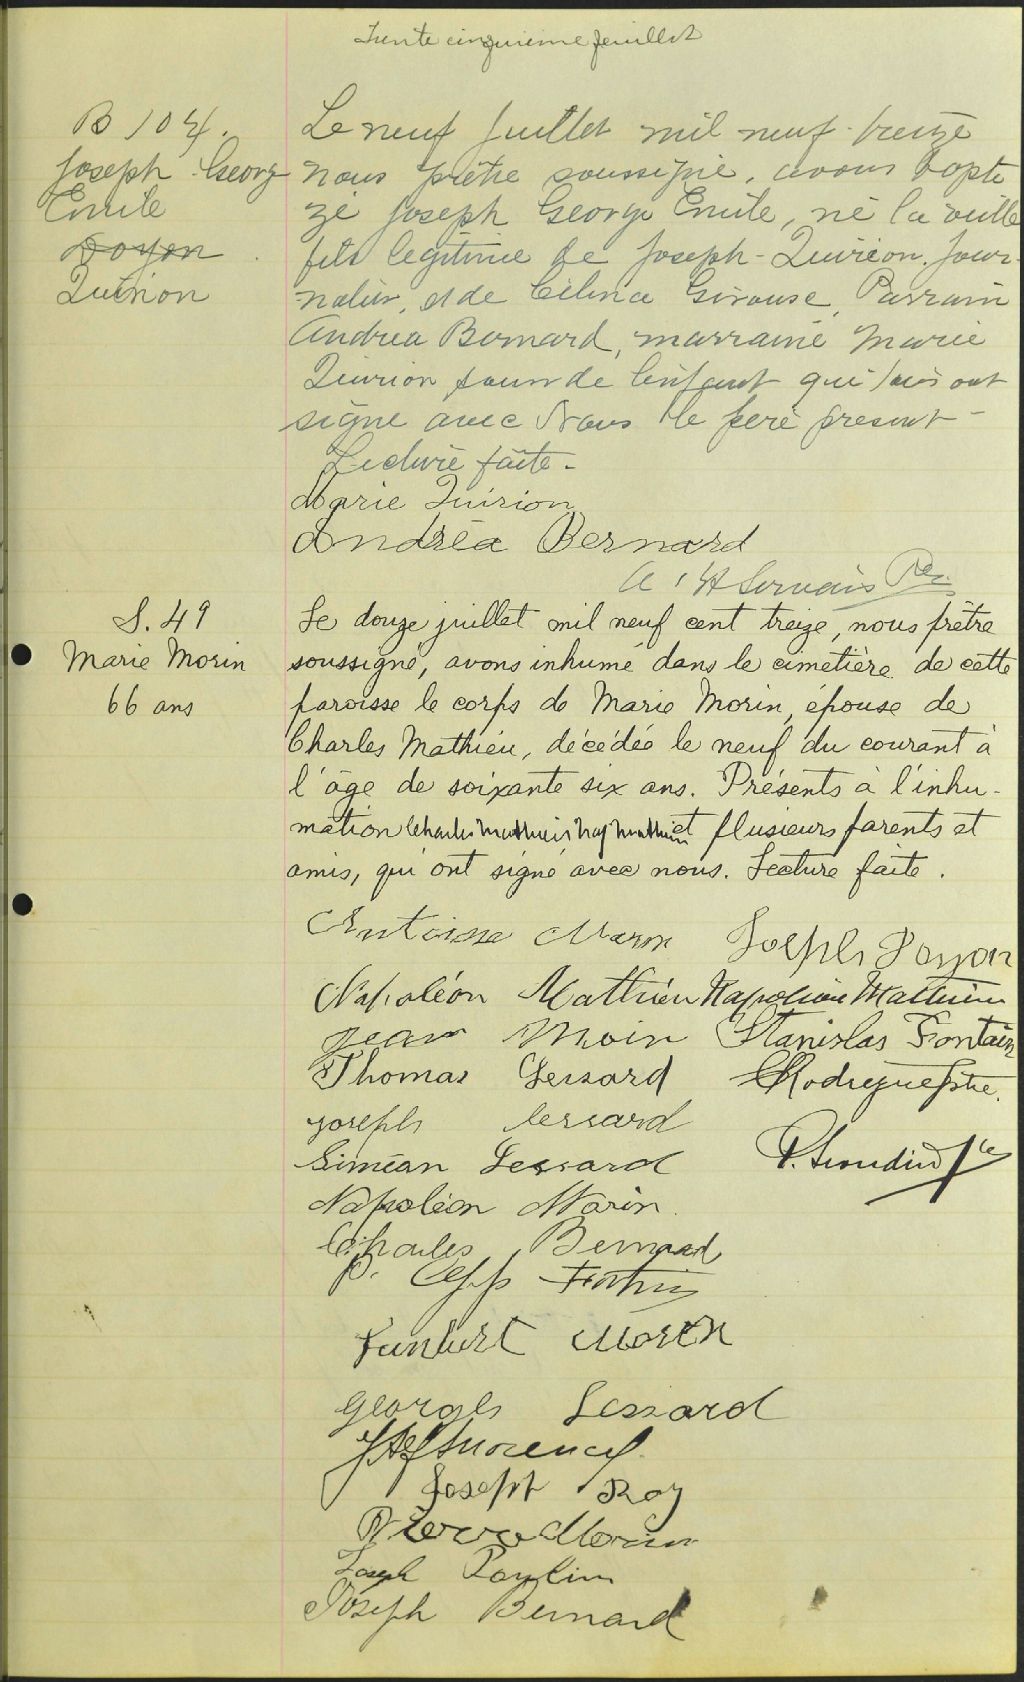 Trente cinquième feuillet
B 104.
Joseph Georg
Emile
Doyon
Quirion
Le neuf Juillet mil neuf-treize
nous prêtre soussigné, avons bapti
zé Joseph George Emile, né la veille
fils légitime de Joseph-Quirion, Jour-
nalier, et de Célina Girouse, Parrain
Andréa Bernard, marraine Marie
Quirion soeur de l'enfant qui ont
signé avec Nous le père présent-
Lecture faite-
Marie Quirion
Andréa Bernard
Servais Ptre
S. 49
Marie Morin
66 ans
Le douze juillet mil neuf cent treize, nous prêtre
soussigné, avons inhumé dans le cimetière de cette
paroisse le corps de Marie Morin, épouse de
Charles Mathieu, décédée le neuf du courant à
l'âge de soixante six ans. Présents à l'inhu-
mation Charles Mathieu, Nap Mathieu et plusieurs parents et
amis, qui ont signé avec nous. Lecture faite.
Antoine Morin Joseph Doyon
Napoléon Mathieu Napoleon Mathieu
Jean Moin Stanislas Fontain
Thomas Lessard Rodrigue Ptre.
Joseph Lessard
Siméan Lessard
Napoléon Morin
Charles Bernard
P.
Morin
Georges Lessard
Joseph Roy
Pierre Morin
Joseph Poulin
Joseph Bernard